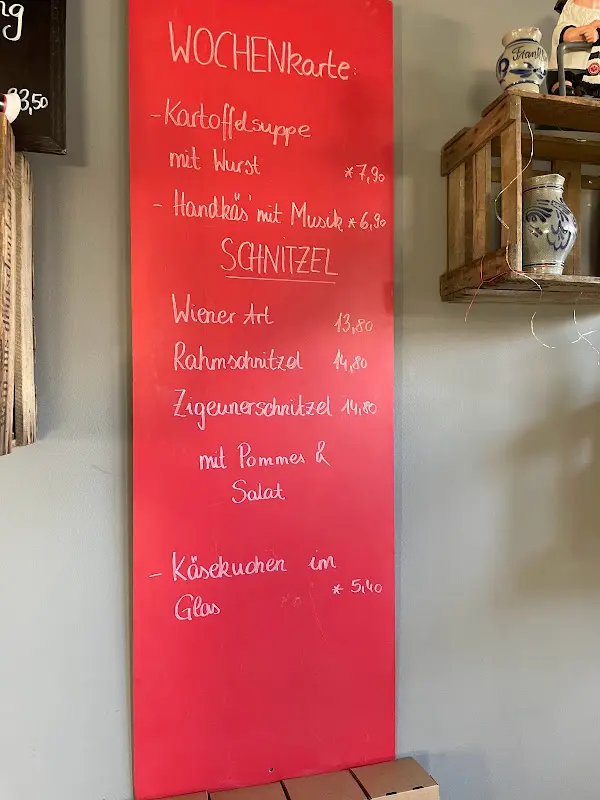 ng
3,50
WOCHENkarte:
- Kartoffelsuppe
mit Wurst *7,90
- Handkäs' mit Musik *6,90
SCHNITZEL
Wiener Art 13,80
Rahmschnitzel 14,80
Zigeunerschnitzel 14,80
mit Pommes &
Salat
- Käsekuchen im
Glas * 5,40